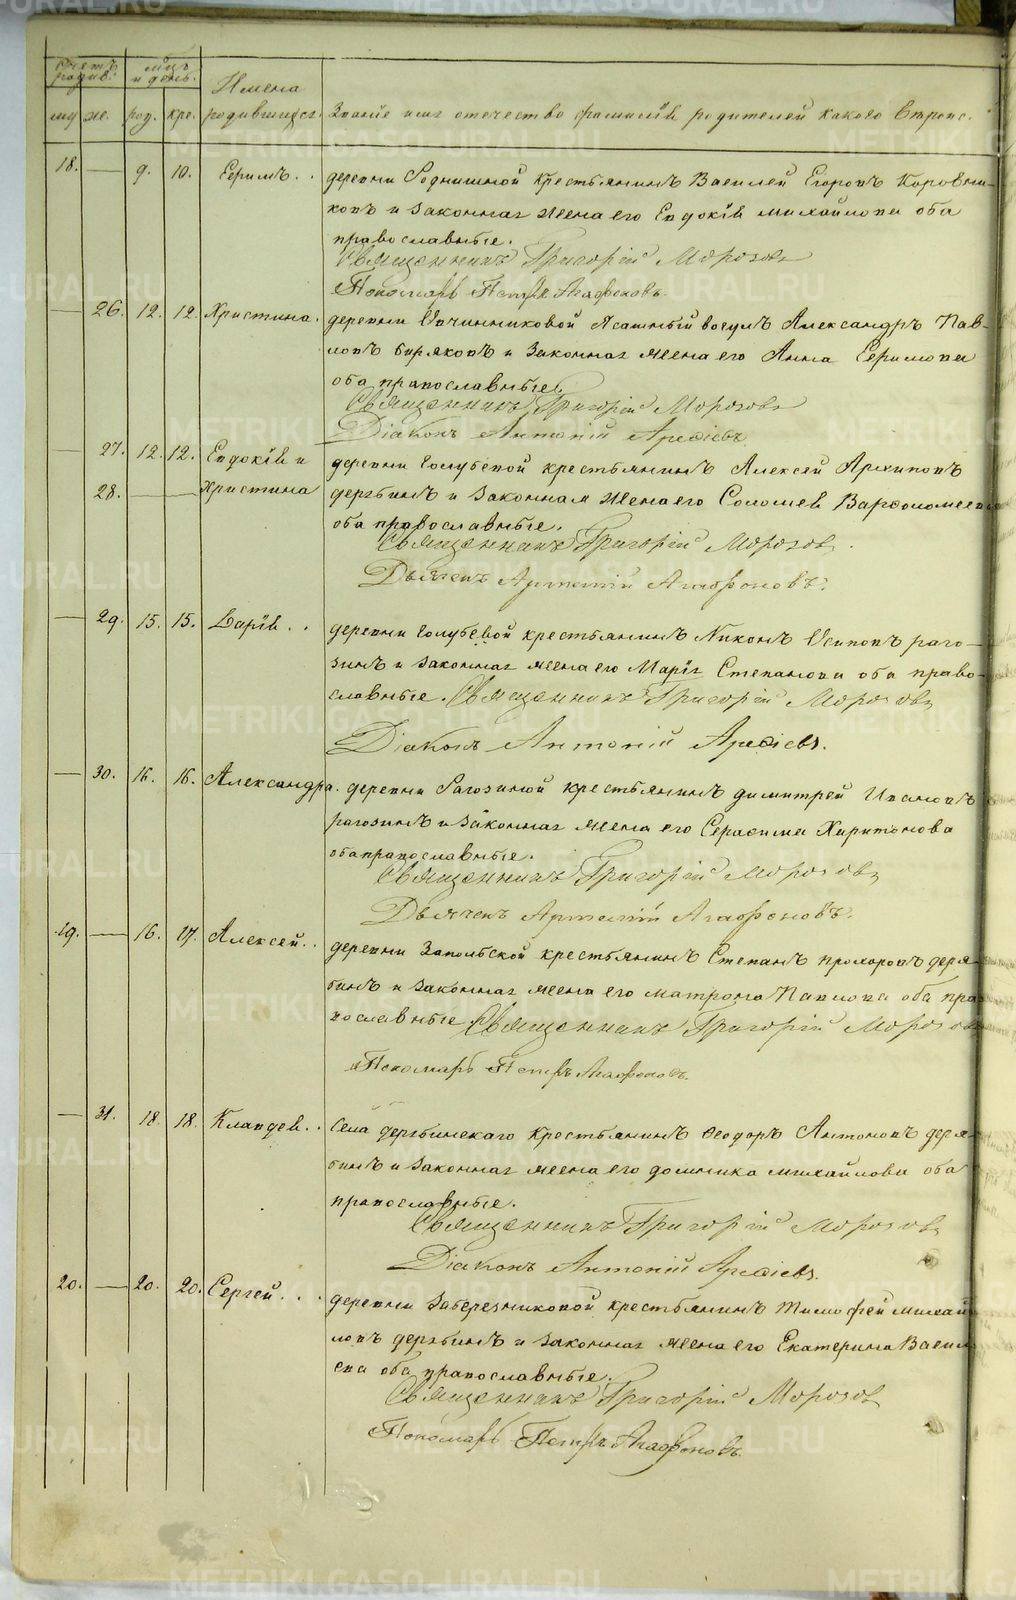 Счетъ родив.
мцъ и день.
Имена родившихся.
му же. род. кре. Званіе имя отечество фамиліѣ родителей какого вѣроис.
18. — 9. 10. Ефимъ . . деревни Роднишной крестьянинъ Василей Егоровъ Коровни-
ковъ и законная жена его Евдокіѣ михайлова оба
православные.
Священникъ Григорій Морозовъ
Пономарь Петръ Агафоновъ.
— 26. 12. 12. Христина. деревни Овчинниковой Ясашный вогулъ Александръ Пав-
ловъ бирюковъ и законная жена его Анна Ефимова
оба православные.
Священникъ Григорій Морозовъ
Діаконъ Антоній Арефіевъ
— 27. 12. 12. Евдокіѣ и деревни Голубевой крестьянинъ Алексей Архиповъ
28. — — Христина дерябинъ и законная жена его Соломеѣ Варфоломеева
оба православные.
Священникъ Григорій Морозовъ.
Дьячекъ Артемій Агафоновъ.
— 29. 15. 15. Даріѣ . . деревни Голубевой крестьянинъ Никонъ Осиповъ раго-
зинъ и законная жена его Марія Степанова оба право-
славные. Священникъ Григорій Морозовъ
Діаконъ Антоній Арефіевъ.
— 30. 16. 16. Александра. деревни Рагозиной крестьянинъ димитрей Ивановъ
рагозинъ и законная жена его Серафима Харитонова
оба православные.
Священникъ Григорій Морозовъ
Дьячекъ Артемій Агафоновъ.
19. — 16. 17. Алексей . . деревни Запольской крестьянинъ Степанъ прохоровъ деря-
бинъ и законная жена его матрона Павлова оба пра-
вославные. Священникъ Григорій Морозовъ
Пономарь Петръ Агафоновъ.
— 31. 18. 18. Клавдеѣ . . Села дерябинскаго крестьянинъ Феодоръ Антоновъ деря-
бинъ и законная жена его домника михайлова оба
православные.
Священникъ Григорій Морозовъ
Діаконъ Антоній Арефіевъ.
20. — 20. 20. Сергей . . . деревни Заберезниковой крестьянинъ Тимофей михай-
ловъ дерябинъ и законная жена его Екатерина Васил-
ева оба православные.
Священникъ Григорій Морозовъ
Пономарь Петръ Агафоновъ.
METRIKI.GASO-URAL.RU